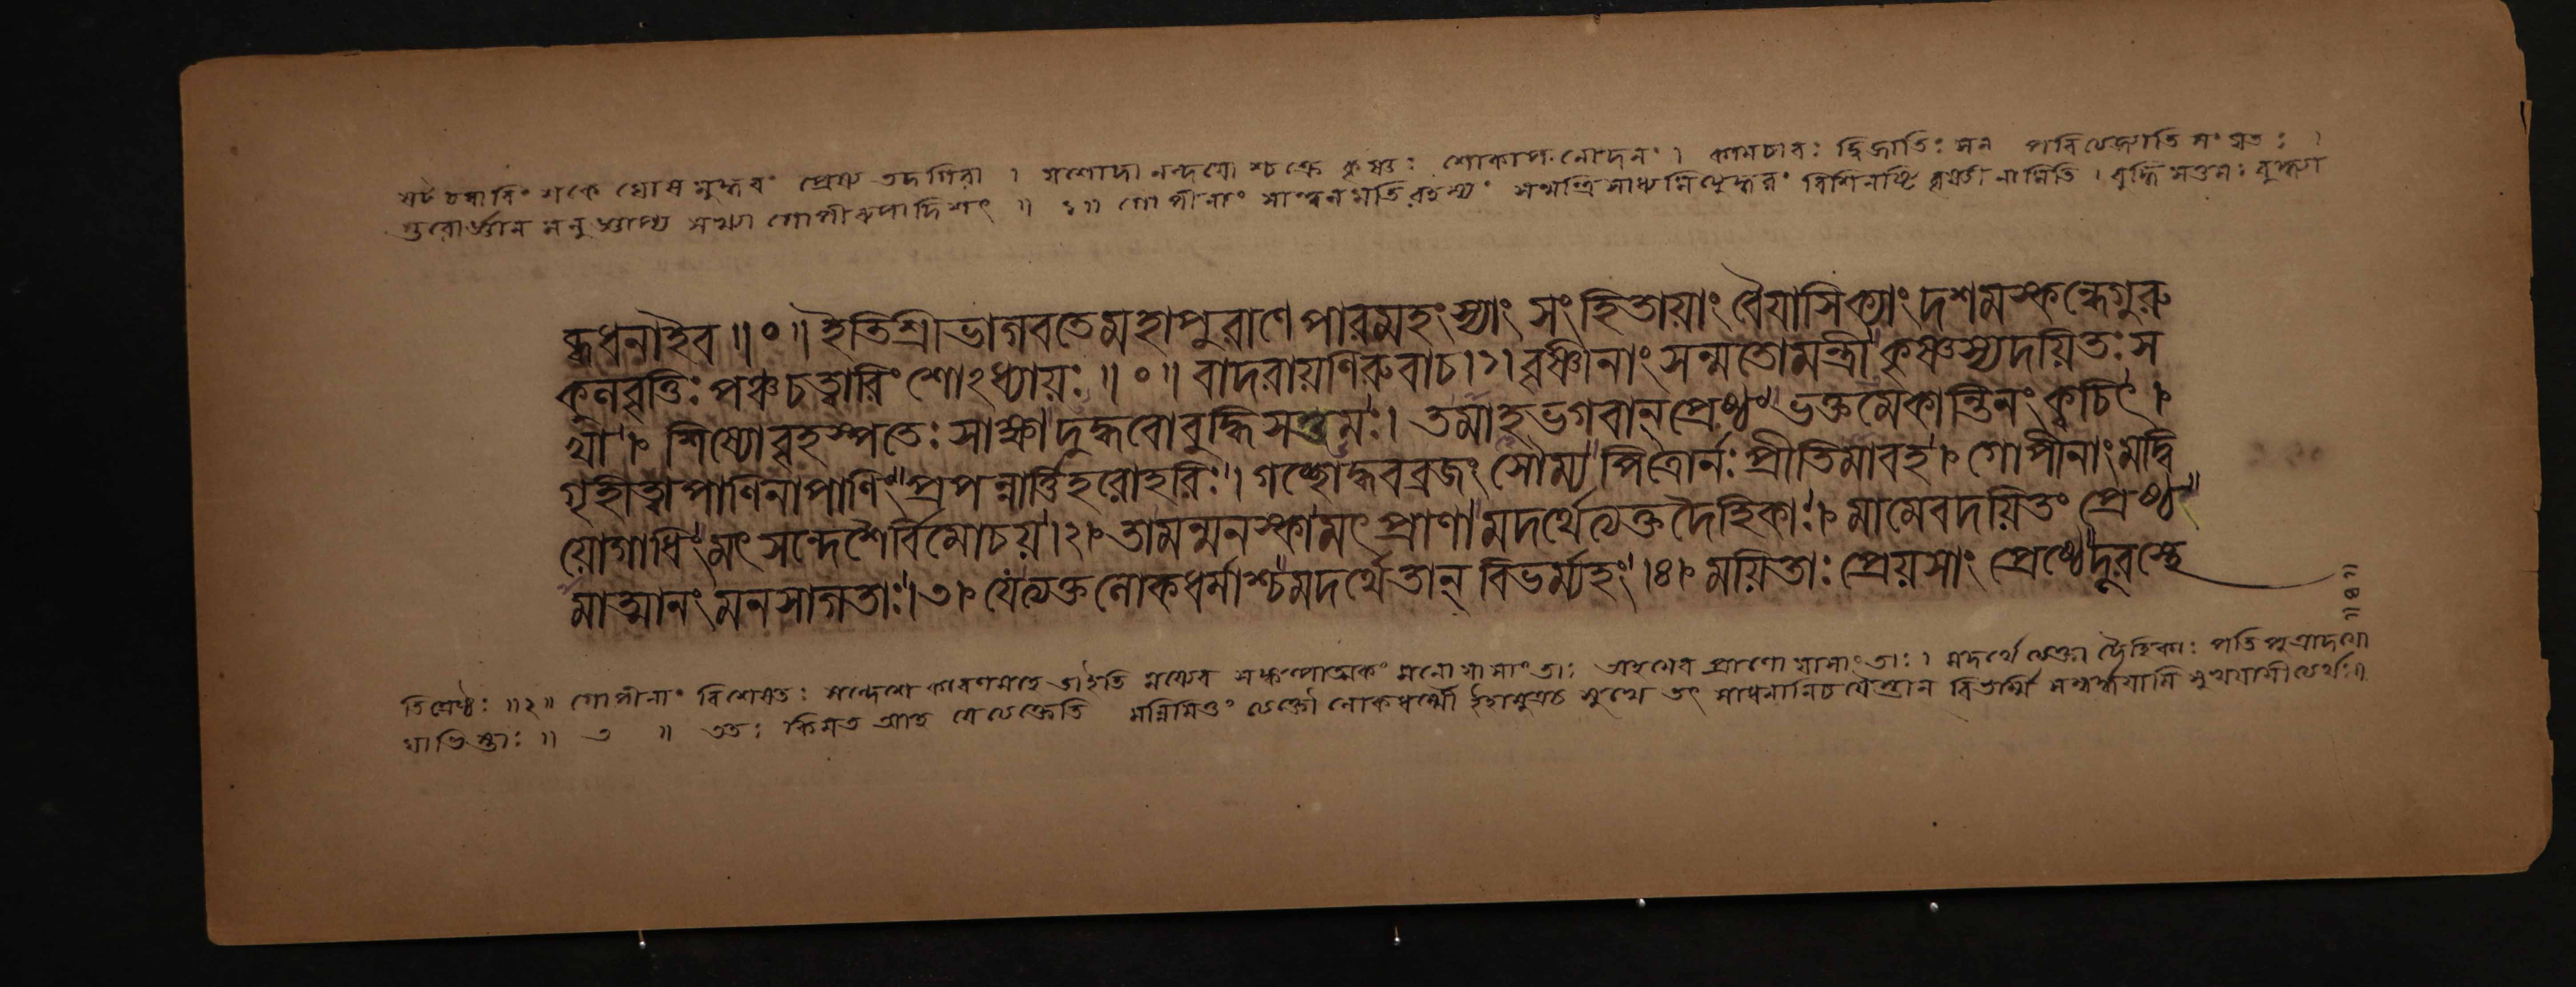 ষট্চত্বারিংশকে ঘোষমুদ্ধবং প্রেষ্য তদ্গিরা । যশোদানন্দয়োশ্চক্রে কৃষ্ণঃ শোকাপনোদনং । কামচারঃ দ্বিজাতিঃ
গুরোর্জ্ঞান মনুজ্ঞাপ্য সখ্যা গোপীরুপাদিশৎ ॥ ১॥ গোপীনাং সান্ত্বনমতিরহস্যং বৃষ্ণীনামিতি । বুদ্ধিসত্তমঃ বুদ্ধ্যা
দ্ধ্বধনাইব ॥ ০ ॥ ইতিশ্রীভাগবতেমহাপুরাণে পারমহংস্যাং সংহিতায়াং বৈয়াসিক্যাং দশমস্কন্ধেগুরু
কুলবৃত্তিঃ পঞ্চচত্বারিংশোঽধ্যায়ঃ ॥ ০ ॥ বাদরায়ণিরুবাচ।১। বৃষ্ণীনাং সন্মতোমন্ত্রী কৃষ্ণস্যদয়িতঃ স
খা । শিষ্যোবৃহস্পতেঃ সাক্ষাদুদ্ধবোবুদ্ধিসত্তমঃ। তমাহভগবান্প্রেষ্ঠং ভক্তমেকান্তিনং ক্বচিৎ ।
গৃহীত্বাপাণিনাপাণিং প্রপন্নার্ত্তিহরোহরিঃ। গচ্ছোদ্ধবব্রজং সৌম্য পিত্রোর্নঃ প্রীতিমাবহ । গোপীনাং মদ্বি
য়োগাধিং মৎসন্দেশৈর্বিমোচয়।২। তামন্মনস্কামৎপ্রাণা মদর্থেত্যক্তদৈহিকাঃ। মামেবদয়িতং প্রেষ্ঠ
মাত্মানং মনসাগতাঃ।৩। যেত্যক্তলোকধর্মাশ্চমদর্থেতান্ বিভর্ম্যহং।৪। ময়িতাঃ প্রেয়সাং প্রেষ্ঠেদূরস্থে
॥৪॥
তিশ্রেষ্ঠঃ ॥২॥ গোপীনাং বিশেষতঃ সন্দেশে কারণমাহ তাইতি ময্যেব সঙ্কল্পাত্মকং মনো যাসাং তাঃ অহমেব প্রাণো যাসাং তাঃ । মদর্থে ত্যক্তা দৈহিকাঃ পতিপুত্রাদয়ো
যাভিস্তাঃ ॥ ৩ ॥ ততঃ কিমত আহ যে ত্যক্তেতি মন্নিমিত্তং ত্যক্তৌ লোকধর্ম্মৌ ইহামুত্রচ সুখে তৎ সাধনানিচ যৈস্তান্ বিভর্ম্মি